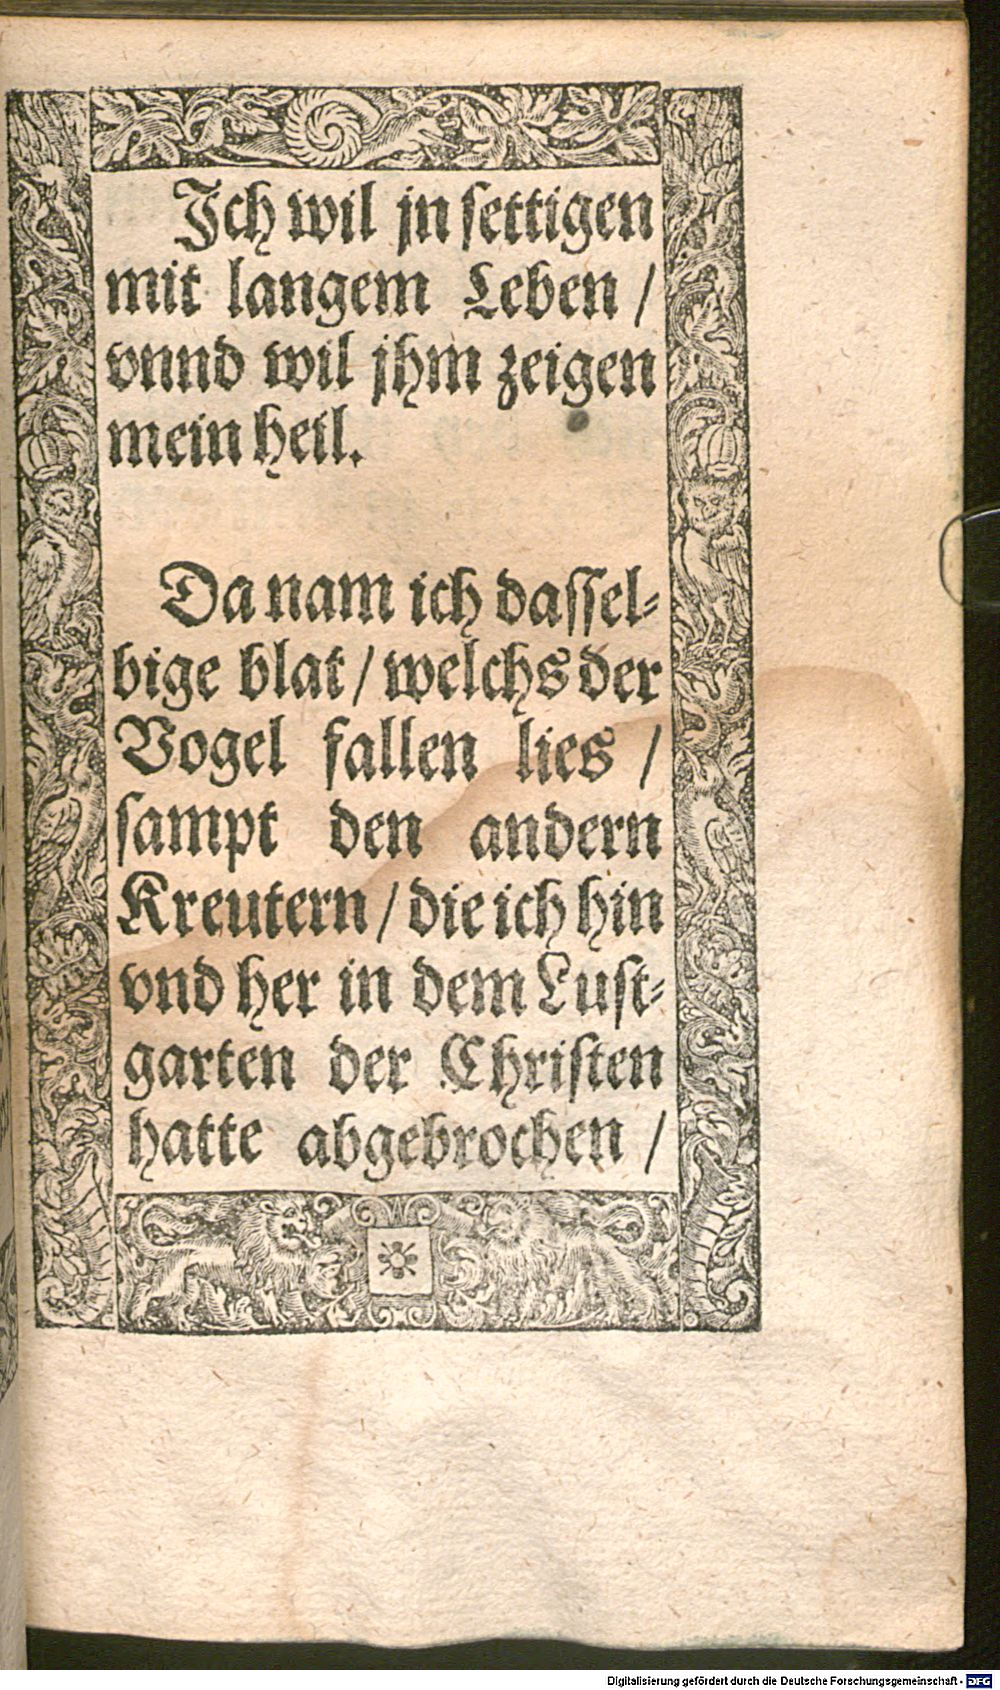 Ich wil jn settigen
mit langem Leben /
vnnd wil jhm zeigen
mein heil.
Da nam ich dassel-
bige blat / welchs der
Vogel fallen lies /
sampt den andern
Kreutern / die ich hin
vnd her in dem Lust-
garten der Christen
hatte abgebrochen /
Digitalisierung gefördert durch die Deutsche Forschungsgemeinschaft - DFG